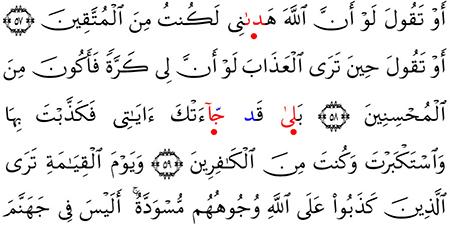 أَوْ تَقُولَ لَوْ أَنَّ ٱللَّهَ هَدىٰنِى لَكُنتُ مِنَ ٱلْمُتَّقِينَ ۝٥٧
أَوْ تَقُولَ حِينَ تَرَى ٱلْعَذَابَ لَوْ أَنَّ لِى كَرَّةً فَأَكُونَ مِنَ
ٱلْمُحْسِنِينَ ۝٥٨ بَلىٰ قَد جَّآءَتْكَ ءَايَٰتِى فَكَذَّبْتَ بِهَا
وَٱسْتَكْبَرْتَ وَكُنتَ مِنَ ٱلْكَٰفِرِينَ ۝٥٩ وَيَوْمَ ٱلْقِيَٰمَةِ تَرَى
ٱلَّذِينَ كَذَبُوا۟ عَلَى ٱللَّهِ وُجُوهُهُم مُّسْوَدَّةٌ ۚ أَلَيْسَ فِى جَهَنَّمَ